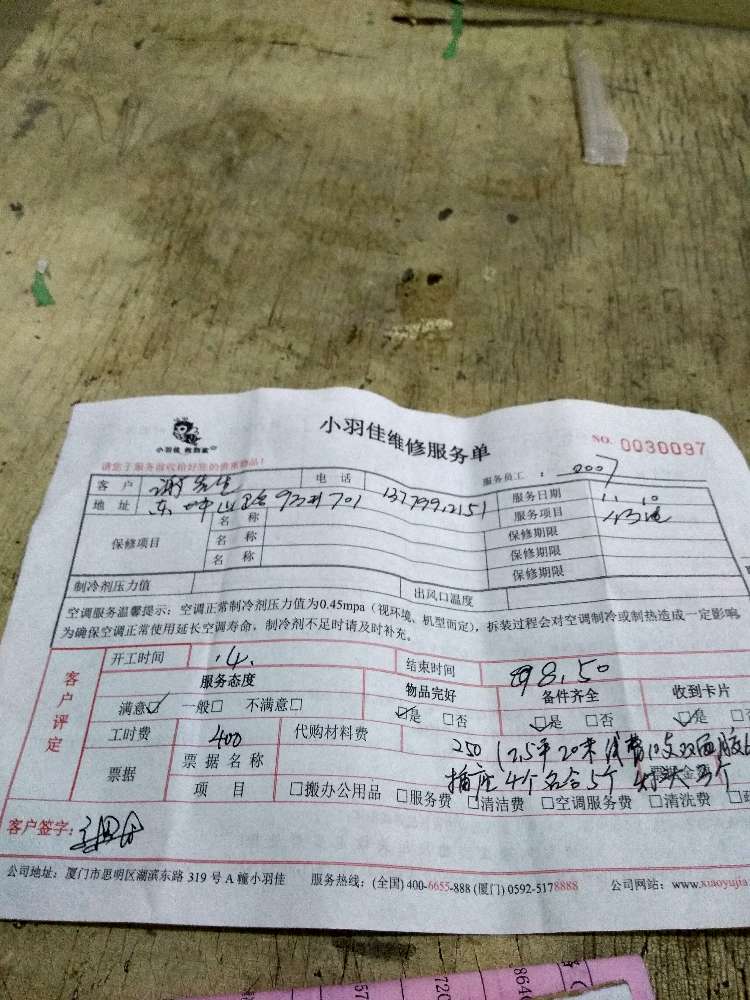 小羽佳维修服务单
小羽佳 救到家
NO. 0030097
请您于服务前收拾好您的贵重物品！
服务员工： 2007
客户 谢先生 电话 服务日期 11.10
地址 东 701 服务项目
保修项目 名称 保修期限
名称 保修期限
名称 保修期限
制冷剂压力值 出风口温度
空调服务温馨提示：空调正常制冷剂压力值为0.45mpa（视环境、机型而定），拆装过程会对空调制冷或制热造成一定影响，
为确保空调正常使用延长空调寿命，制冷剂不足时请及时补充。
客户评定
开工时间 14. 结束时间 8.50
服务态度 物品完好 备件齐全 收到卡片
满意☑ 一般□ 不满意□ ☑是 □否 ☑是 □否 ☑是 □否
工时费 400 代购材料费 250（2.5平20米线费10支双面胶
票据 票据名称 插座4个 5个 灯头
项目 □搬办公用品 □服务费 □清洁费 □空调服务费 □清洗费
客户签字：
公司地址：厦门市思明区湖滨东路 319 号 A 幢小羽佳 服务热线：(全国) 400-6655-888 (厦门) 0592-5178888 公司网站：www.xiaoyujia